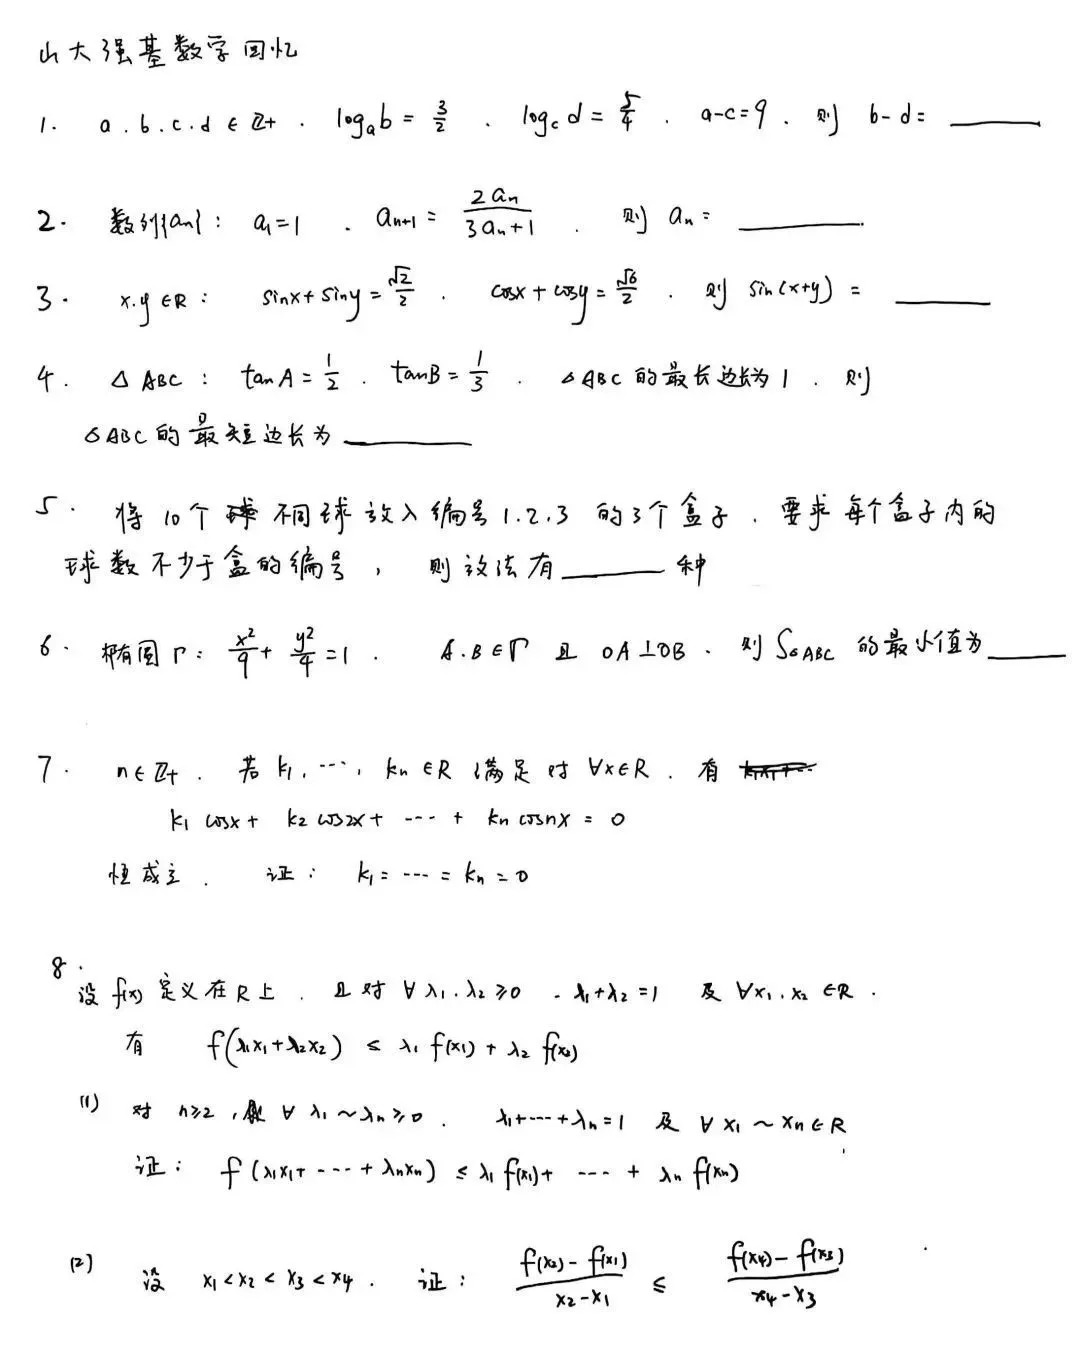 山大强基数学回忆
1. a.b.c.d ∈ Z+ . log_a b = 3/2 . log_c d = 5/4 . a-c=9 . 则 b-d= ____
2. 数列{an}: a₁=1 . aₙ₊₁ = 2aₙ/(3aₙ+1) . 则 aₙ= ____
3. x.y∈R: sinx+siny=√2/2 . cosx+cosy=√6/2 . 则 sin(x+y) = ____
4. △ABC: tanA=1/2 . tanB=1/3 . △ABC的最长边长为1 . 则
△ABC的最短边长为 ____
5. 将10个不同球放入编号1.2.3的3个盒子. 要求每个盒子内的
球数不少于盒的编号, 则放法有 ____ 种
6. 椭圆Γ: x²/9 + y²/4 = 1 . A.B∈Γ 且 OA⊥OB . 则 S△ABC 的最小值为 ____
7. n∈Z+ . 若 k₁, ..., kₙ∈R 满足对 ∀x∈R . 有
k₁cosx + k₂cos2x + ---- + kₙcosnx = 0
恒成立. 证: k₁= ---- = kₙ = 0
8.
设 f(x) 定义在R上. 且对 ∀λ₁.λ₂≥0 . λ₁+λ₂=1 及 ∀x₁.x₂∈R .
有 f(λ₁x₁+λ₂x₂) ≤ λ₁f(x₁) + λ₂f(x₂)
(1) 对 n≥2, ∀λ₁~λₙ≥0 . λ₁+---+λₙ=1 及 ∀x₁~xₙ∈R
证: f(λ₁x₁+----+λₙxₙ) ≤ λ₁f(x₁)+ ---- + λₙf(xₙ)
(2) 设 x₁<x₂<x₃<x₄ . 证: (f(x₂)-f(x₁))/(x₂-x₁) ≤ (f(x₄)-f(x₃))/(x₄-x₃)